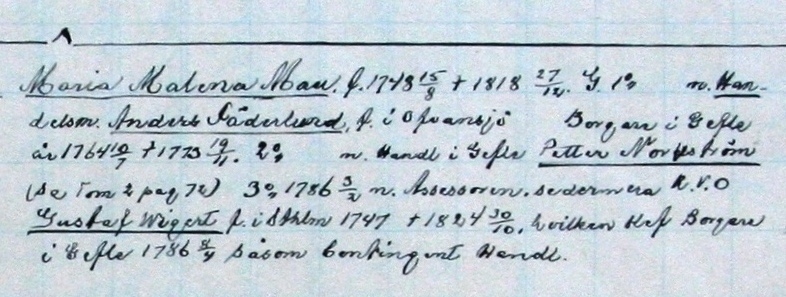 Maria Malena Mau. f. 1748 15/8 + 1818 27/12. G. 1o, m. Han-
delsm. Anders Söderlund, f. i Ofvansjö Borgare i Gefle
år 1764 10/7 + 1773 19/4. 2o, m. Handl i Gefle Petter Norström
(se Tom 2 pag 72) 3o, 1786 3/2 m. Assessoren, sedermera R.V.O
Gustaf Wigert f. i Sthlm 1747 + 1824 30/10, hvilken blef Borgare
i Gefle 1786 8/4 såsom Contingent Handl.